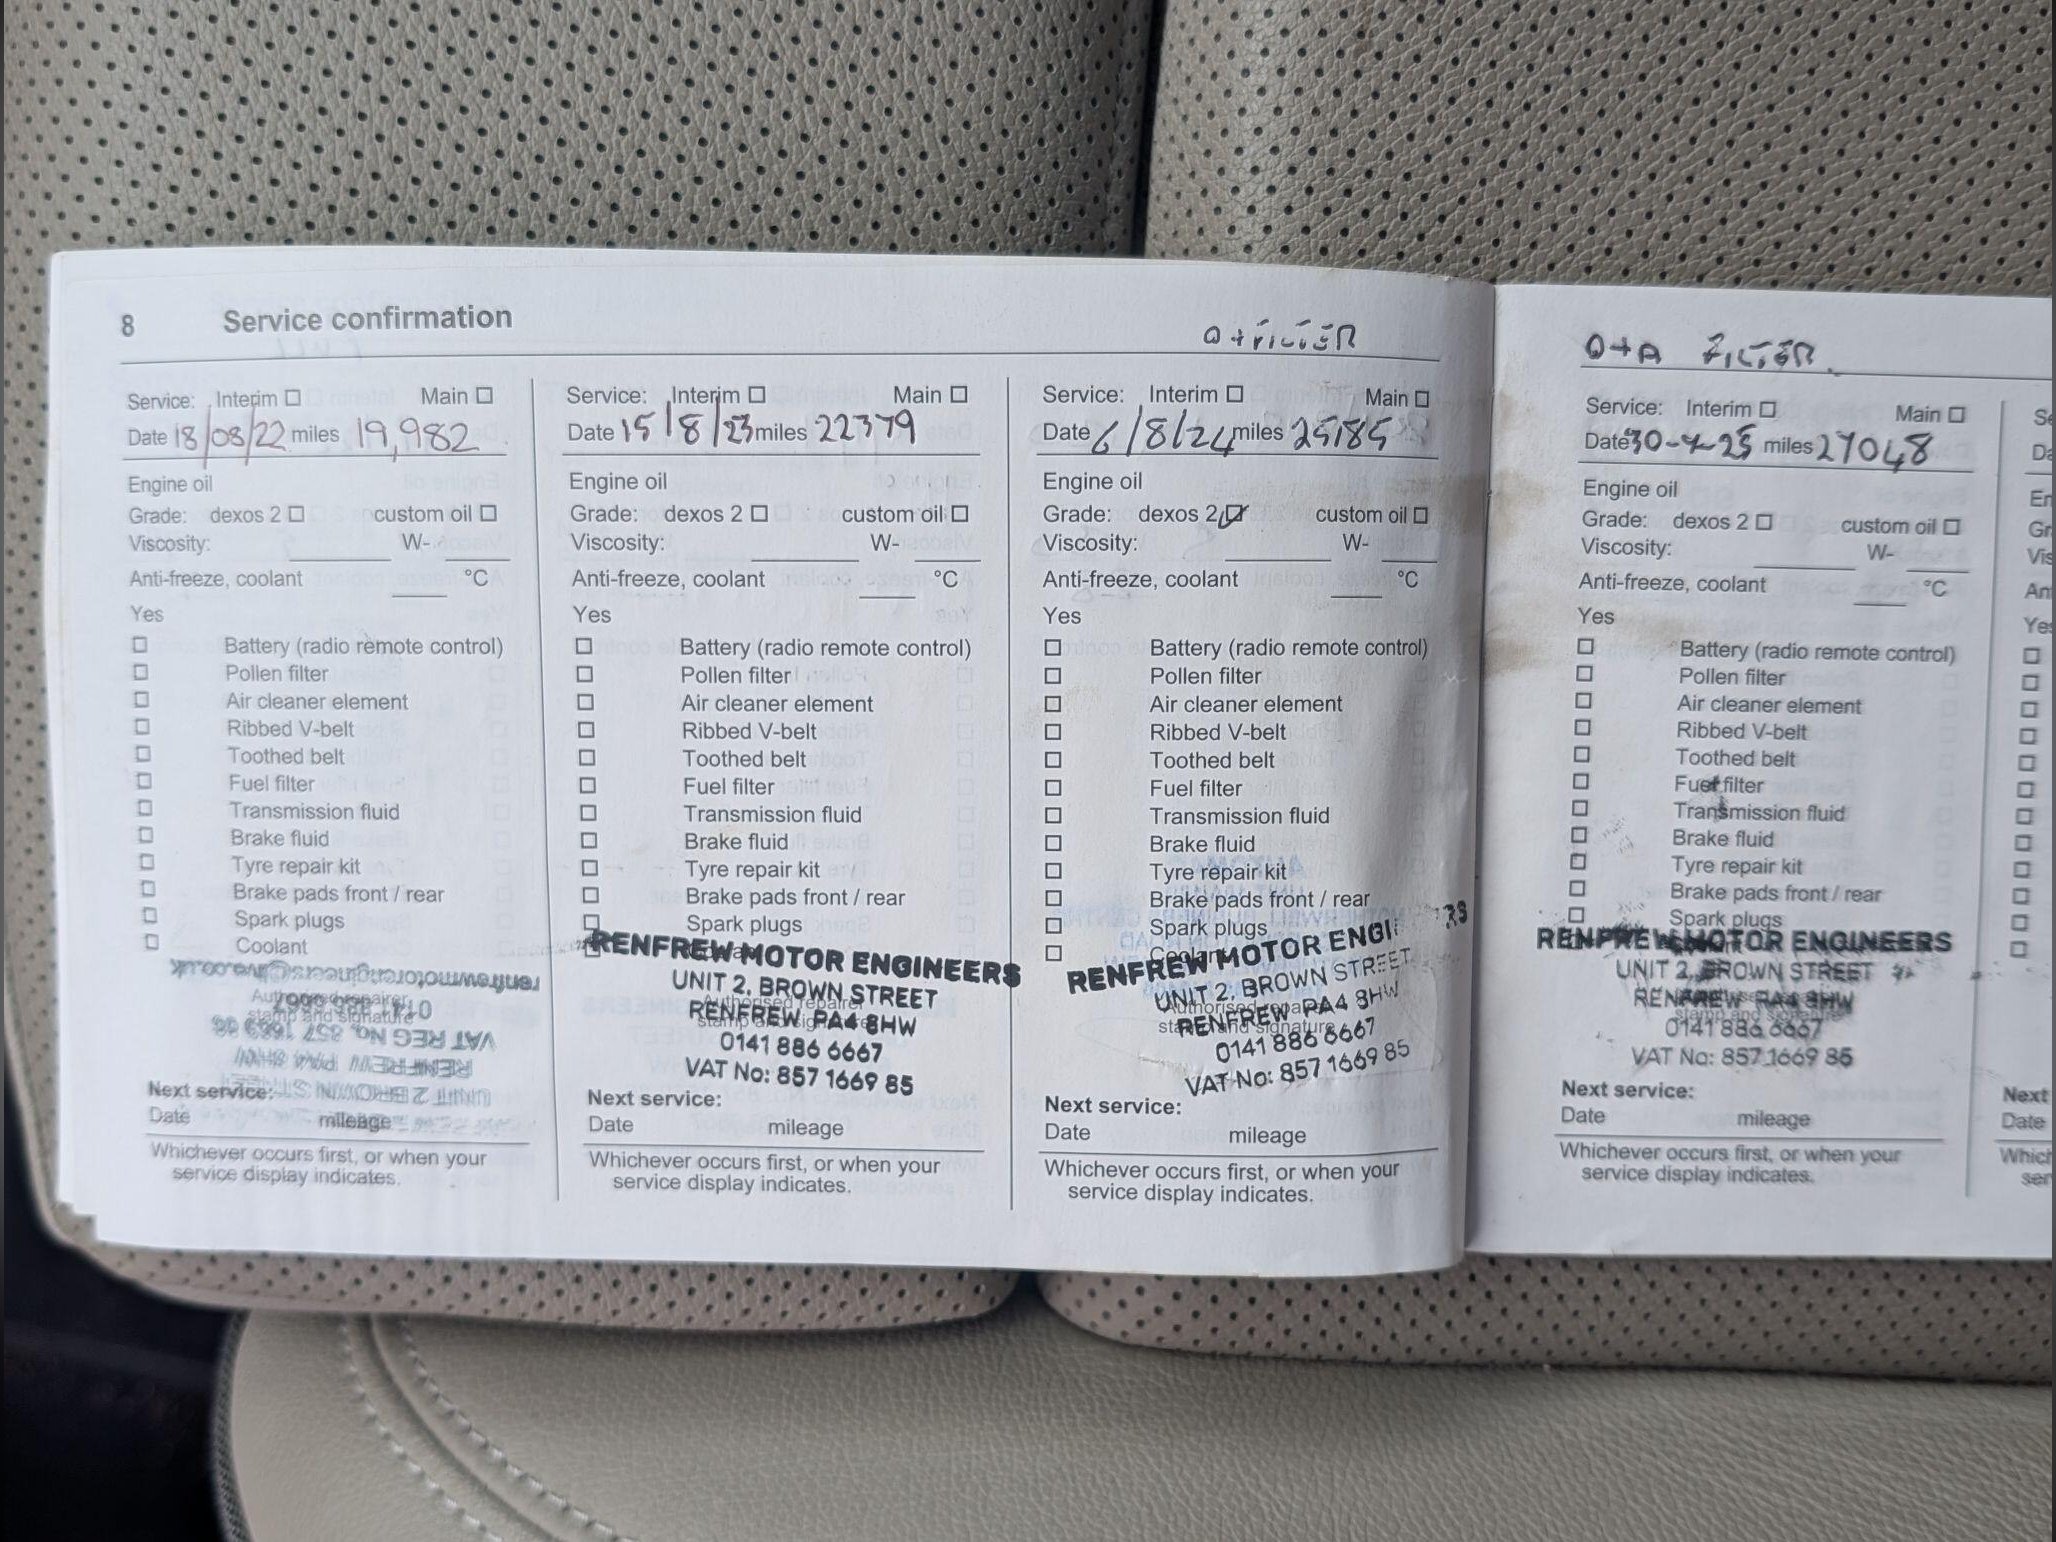 8 Service confirmation
O + FILTER
Service: Interim Main
Date 18/08/22 miles 19,982
Engine oil
Grade: dexos 2 custom oil
Viscosity: W-
Anti-freeze, coolant °C
Yes
Battery (radio remote control)
Pollen filter
Air cleaner element
Ribbed V-belt
Toothed belt
Fuel filter
Transmission fluid
Brake fluid
Tyre repair kit
Brake pads front / rear
Spark plugs
Coolant
renfrewmotorengineers@live.co.uk
Authorised repairer
stamp and signature
VAT REG No. 857 1669 85
UNIT 2 BROWN STREET
Next service:
Date mileage
Whichever occurs first, or when your
service display indicates.
Service: Interim Main
Date 15/8/23 miles 22379
Engine oil
Grade: dexos 2 custom oil
Viscosity: W-
Anti-freeze, coolant °C
Yes
Battery (radio remote control)
Pollen filter
Air cleaner element
Ribbed V-belt
Toothed belt
Fuel filter
Transmission fluid
Brake fluid
Tyre repair kit
Brake pads front / rear
Spark plugs
RENFREW MOTOR ENGINEERS
UNIT 2, BROWN STREET
Authorised repairer
RENFREW PA4 8HW
stamp and signature
0141 886 6667
VAT No: 857 1669 85
Next service:
Date mileage
Whichever occurs first, or when your
service display indicates.
Service: Interim Main
Date 6/8/24 miles 25185
Engine oil
Grade: dexos 2 custom oil
Viscosity: W-
Anti-freeze, coolant °C
Yes
Battery (radio remote control)
Pollen filter
Air cleaner element
Ribbed V-belt
Toothed belt
Fuel filter
Transmission fluid
Brake fluid
Tyre repair kit
Brake pads front / rear
Spark plugs
Coolant
RENFREW MOTOR ENGI RS
UNIT 2, BROWN STREET
Authorised repairer
RENFREW PA4 8HW
stamp and signature
0141 886 6667
VAT No: 857 1669 85
Next service:
Date mileage
Whichever occurs first, or when your
service display indicates.
O + A FILTER
Service: Interim Main
Date 30-7-25 miles 27048
Engine oil
Grade: dexos 2 custom oil
Viscosity: W-
Anti-freeze, coolant °C
Yes
Battery (radio remote control)
Pollen filter
Air cleaner element
Ribbed V-belt
Toothed belt
Fuel filter
Transmission fluid
Brake fluid
Tyre repair kit
Brake pads front / rear
Spark plugs
RENFREW MOTOR ENGINEERS
UNIT 2, BROWN STREET
RENFREW PA4 8HW
stamp and signature
0141 886 6667
VAT No: 857 1669 85
Next service:
Date mileage
Whichever occurs first, or when your
service display indicates.
Yes
Next
Date